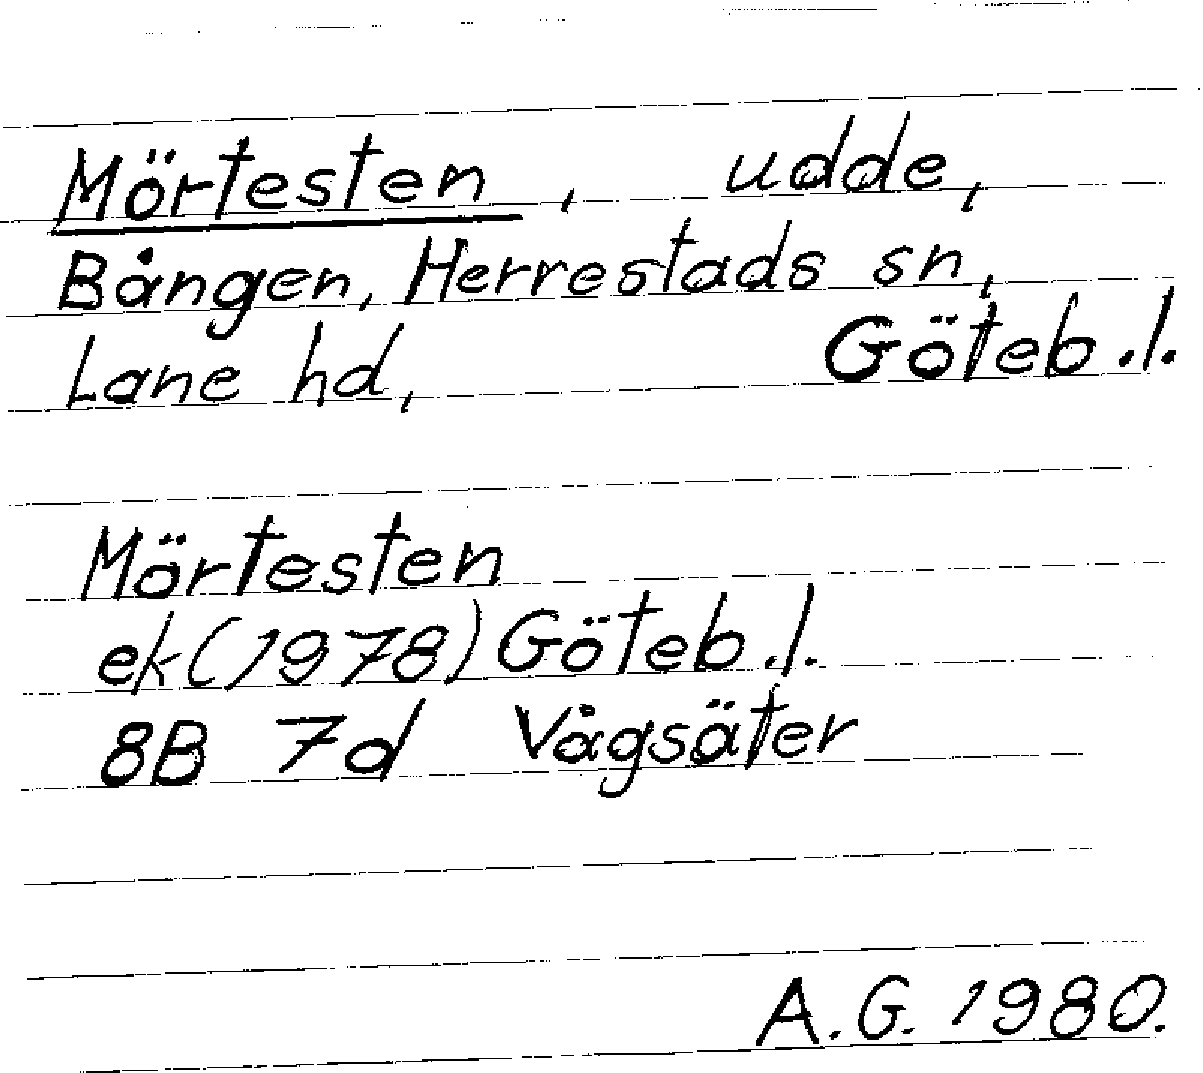 Mörtesten, udde,
Bången, Herrestads sn,
Lane hd, Göteb.l.
Mörtesten
ek(1978) Göteb.l.
8B 7d Vågsäter
A.G. 1980.